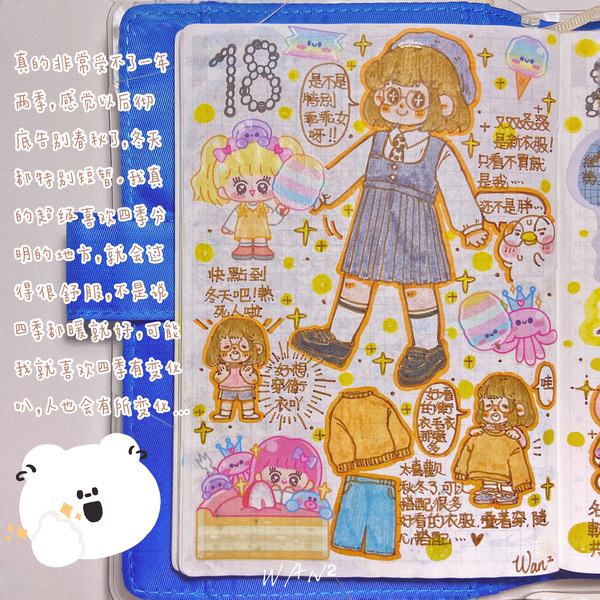 真的非常受不了一年
两季,感觉以后彻
底告别春秋了,冬天
都特别短暂。我真
的超级喜欢四季分
明的地方,就会过
得很舒服,不是说
四季都暖就好,可能
我就喜欢四季有变化
叭,人也会有所变化...
18
是不是
特别
乖乖女
呀!!
是新衣服!
只看不買就
是我....
还不是胖....
快點到
冬天吧!熱
死人啦
好想
穿衛
衣吖
好看
的衛
衣毛衣
那麼
多
哇
太喜歡
秋冬了,可以
搭配很多
好看的衣服,疊著穿,隨
心搭配...♥
Wan²
WAN²